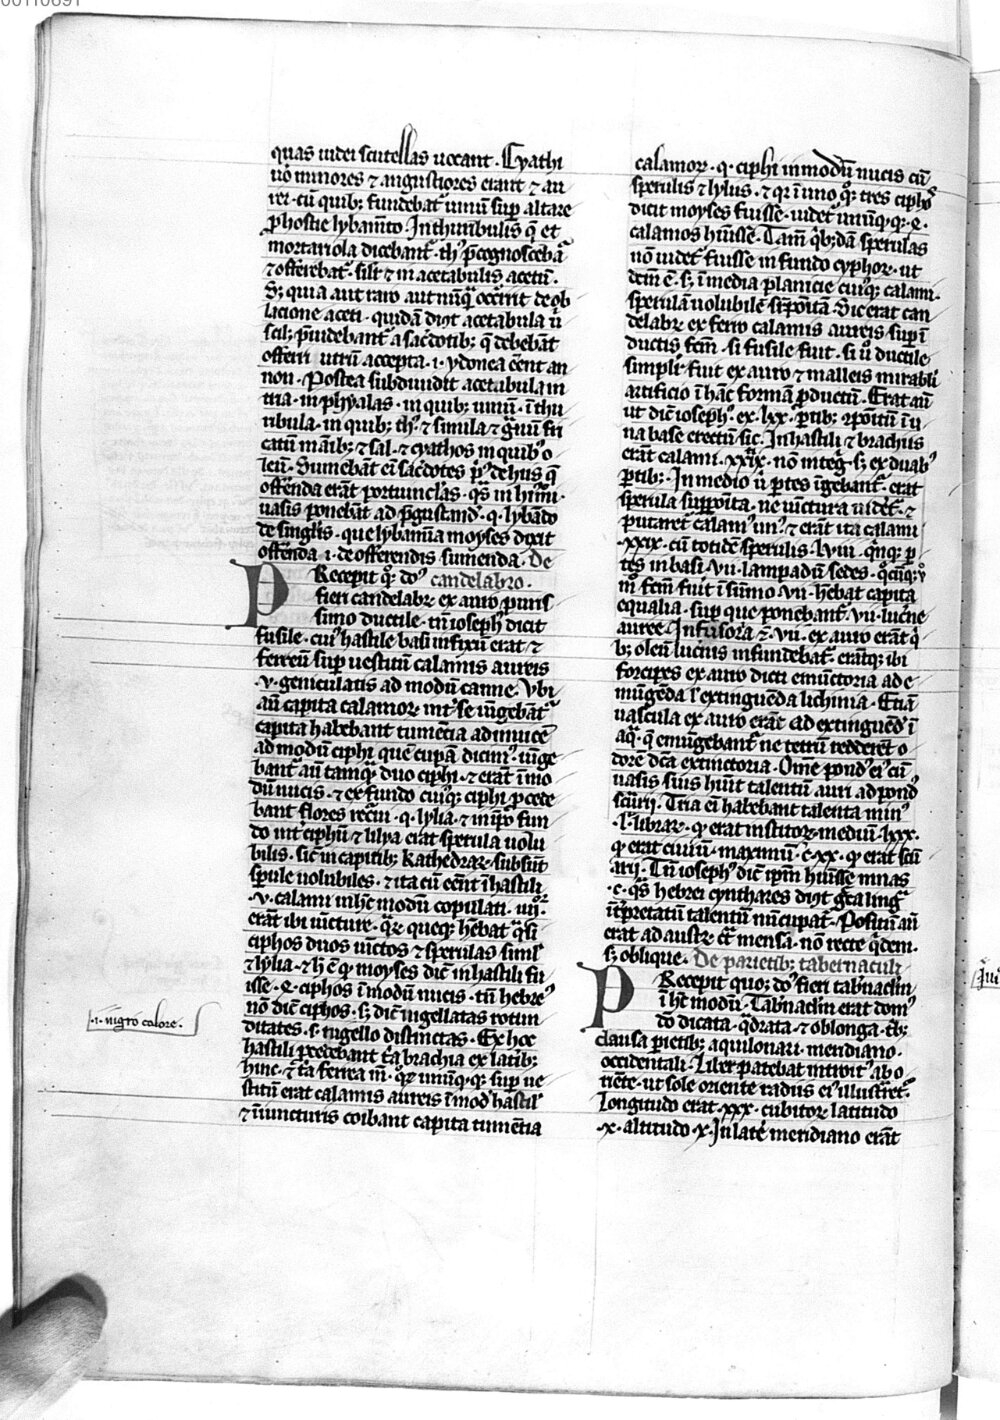 00110691
quas uidei scutellas uocant . Cyathi
uo minores ⁊ angustiores erant ⁊ au
rei . cū quib; fundebat᷑ uinū sup altare
ꝑ hostie lybam̄to . In thuribulis q̄ et
mortariola dicebant᷑ . th᷒ p̄cognoscebā
⁊ offerebat᷑ . silr̄ ⁊ in acetabulis acetū .
S; quia aut raro aut nūq̄ occ̄rrit de ob
licione aceti . quidā dn̄t acetabula ū
scil; p̄uidebant᷑ a sac̄dotib; q̄ debebāt
offerri utrū accepta . i . ydonea cēnt an
non . Postea subdiuidit acetabula in
tria . in phyalas . in quib; uinū . ī thu
ribula . in quib; th᷒ . ⁊ simila ⁊ g̃nū fri
catū māib; ⁊ sal . ⁊ cyathos in quib᷒ o
leū . Sumebāt ei sac̄dotes p᷒ de hus q̄
offerenda erāt portiunclas . q̄s in hīmōi
uasis ponebāt ad p̄gustand᷒ . q . lybādo
de singlis . que lybamīa moyses dixit
offerenda . i . de offerendis sumenda . De
Recepit q̊; do᷒ candelabro .
fieri candelabꝝ ex auro puris
simo ductile . tn̄ ioseph dicit
fusile . cui᷒ hastile basi infixū erat ⁊
ferreū sup uestitū calamis aureis
.v. geniculatis ad modū canne . Vbi
aū capita calamoꝝ int᷑ se iūgebāt᷑
capita habebant tumētia adinuicē
ad modū ciphi quē cupā dicim᷒ . iūge
bant᷑ aū tamq̄ duo ciphi . ⁊ erāt ī mo
dū nucis . ⁊ ex fundo cui᷒q; ciphi p̄cede
bant flores recūi . q . lylia . ⁊ in ip̄o fun
do int᷑ ciphū ⁊ lilya erat sperula uolu
bilis . sic̄ in capitib; kathedraꝝ subsūt
sperule uolubiles . ⁊ ita cū ec̄nt ī hastili
.v. calami in hc̄ modū copulati . iiij.
erāt ibi iūcture . q̄ꝝ queq; hēbat q̄si
ciphos duos iūctos ⁊ sperulas simil᷑
⁊ lylia . ⁊ h̄ ē q̇ moyses dic̄ in hastili fu
isse . ciphos ī modū nucis . tn̄ hebre᷒
nō dic̄ ciphos . s; dic̄ nigellatas rotun
ditates . s . nigello distinctas . Ex hoc
hastili p̄cedebant t̄a brachia ex latib;
hinc . ⁊ t̄a ferrea īn . q̄ꝝ unūq᷒q; sup ue
stitū erat calamis aureis ī mod̄ hastil᷑
⁊ ī iuncturis coibant capita tumētia
.i. nigro colore .
calamoꝝ . q . ciphi in modū nucis cū
sperulis ⁊ lylus . ⁊ q̄ ī uno q̊; tres ciphos
dicit moyses fuisse . uidet᷑ unūq᷒q;
calamos h̄uisse . Tam̄ q̇b;dā sperulas
nō uidet᷑ fuisse in fundo cyphoꝝ . ut
dcm̄ ē . s; ī media planicie cui᷒q; calami .
sperulā uolubilē suppōitā . Sic erat can
delabꝝ ex ferro calamis aureis sup ī
ductis fcm̄ . si fusile fuit . si ū ductile
simplr̄ fuit ex auro ⁊ malleis mirabili
artificio ī hāc formā p̄ductū . Erat aū
ut dic̄ ioseph᷒ ex . lxx . ꝑtib; 9poitū ī u
na base erectū sic . In hastili ⁊ brachiis
erāt calami . xxix . nō integ̃ . s; ex duab᷒
ꝑtib; . In medio ū ꝑtes iūgebant᷑ . erat
sperula suppoita . ne iūctura uidēt᷑ . ⁊
putaret᷑ calam᷒ un᷒ . ⁊ erāt ita calami
.xxix . cū totidē sperulis . lviii . q̄nq; ꝑ
tes in basi . vii . lampadū sedes . q̄cūq;
m̄ fcm̄ fuit ī sūmo vii . hēbat capita
equalia . sup que ponebant᷑ . vii . luc̄ne
auree . Infusoria ē . vii . ex auro erāt q̇
b; oleū lucnis infundebat᷑ . erātq; ibi
forcipes ex auro dicti emūctoria ad e
mūgēda l᷑ extinguēda lichinia . Etiā
uascula ex auro erāt ad extinguēd᷒ ī
aq̄ . q̄ emūgebant᷑ ne tetrū redderēt o
dorē dc̄a extinctoria . Om̄e pond᷒ ei᷒ cū
uasis suis h̄uit talentū auri ad pond᷒
sc̄uarij . Tria ei habebant talenta min᷒
. l . libraꝝ . q̇ erat institoꝝ medium . lxxx .
q̇ erat ciuiū . maximū . c . xx . q̇ erat sc̄u
arij . Tn̄ ioseph᷒ dic̄ ip̄m h̄uisse mnas
.c. q̄s hebrei cynthares dn̄t g̃ca ling̃
īt̄pretatū talentū nūcupat᷑ . Positū aū
erat ad austꝝ c̄t̄ mensā . nō recte q̇dem .
s; oblique . De parietib; tabernaculi
Recepit quo; do᷒ fieri tab̄naclm̄
ī hc̄ modū . Tab̄naclm̄ erat dom᷒
dō dicata . q̄drata ⁊ oblonga . t̄b;
clausa pietib; aquilonari . meridiano .
occidentali . Liber patebat introit᷒ ab o
riēte . ut sole oriente radiis ei᷒ illustret᷑ .
Longitudo erat . xxx . cubitoꝝ latitudo
.x. altitudo .x. In late᷑ meridiano erāt